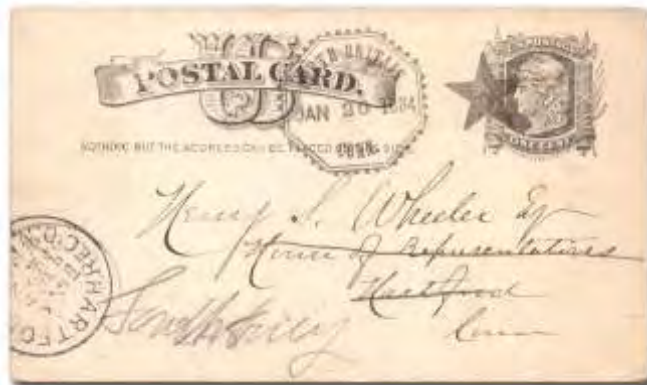 POSTAL CARD.
NEW BRITAIN
JAN 26 1884
CONN.
NOTHING BUT THE ADDRESS CAN BE PLACED ON THIS SIDE
Henry S. Wheeler Esq
House of Representatives
Hartford
Conn
HARTFORD REC'D